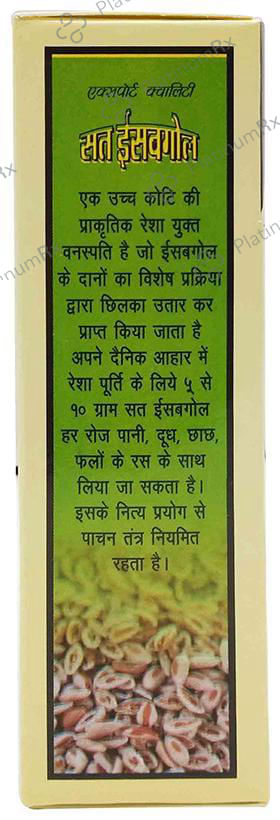 एक्सपोर्ट क्वालिटी
सत ईसबगोल
एक उच्च कोटि की
प्राकृतिक रेशा युक्त
वनस्पति है जो ईसबगोल
के दानों का विशेष प्रक्रिया
द्वारा छिलका उतार कर
प्राप्त किया जाता है
अपने दैनिक आहार में
रेशा पूर्ति के लिये ५ से
१० ग्राम सत ईसबगोल
हर रोज पानी, दूध, छाछ,
फलों के रस के साथ
लिया जा सकता है।
इसके नित्य प्रयोग से
पाचन तंत्र नियमित
रहता है।